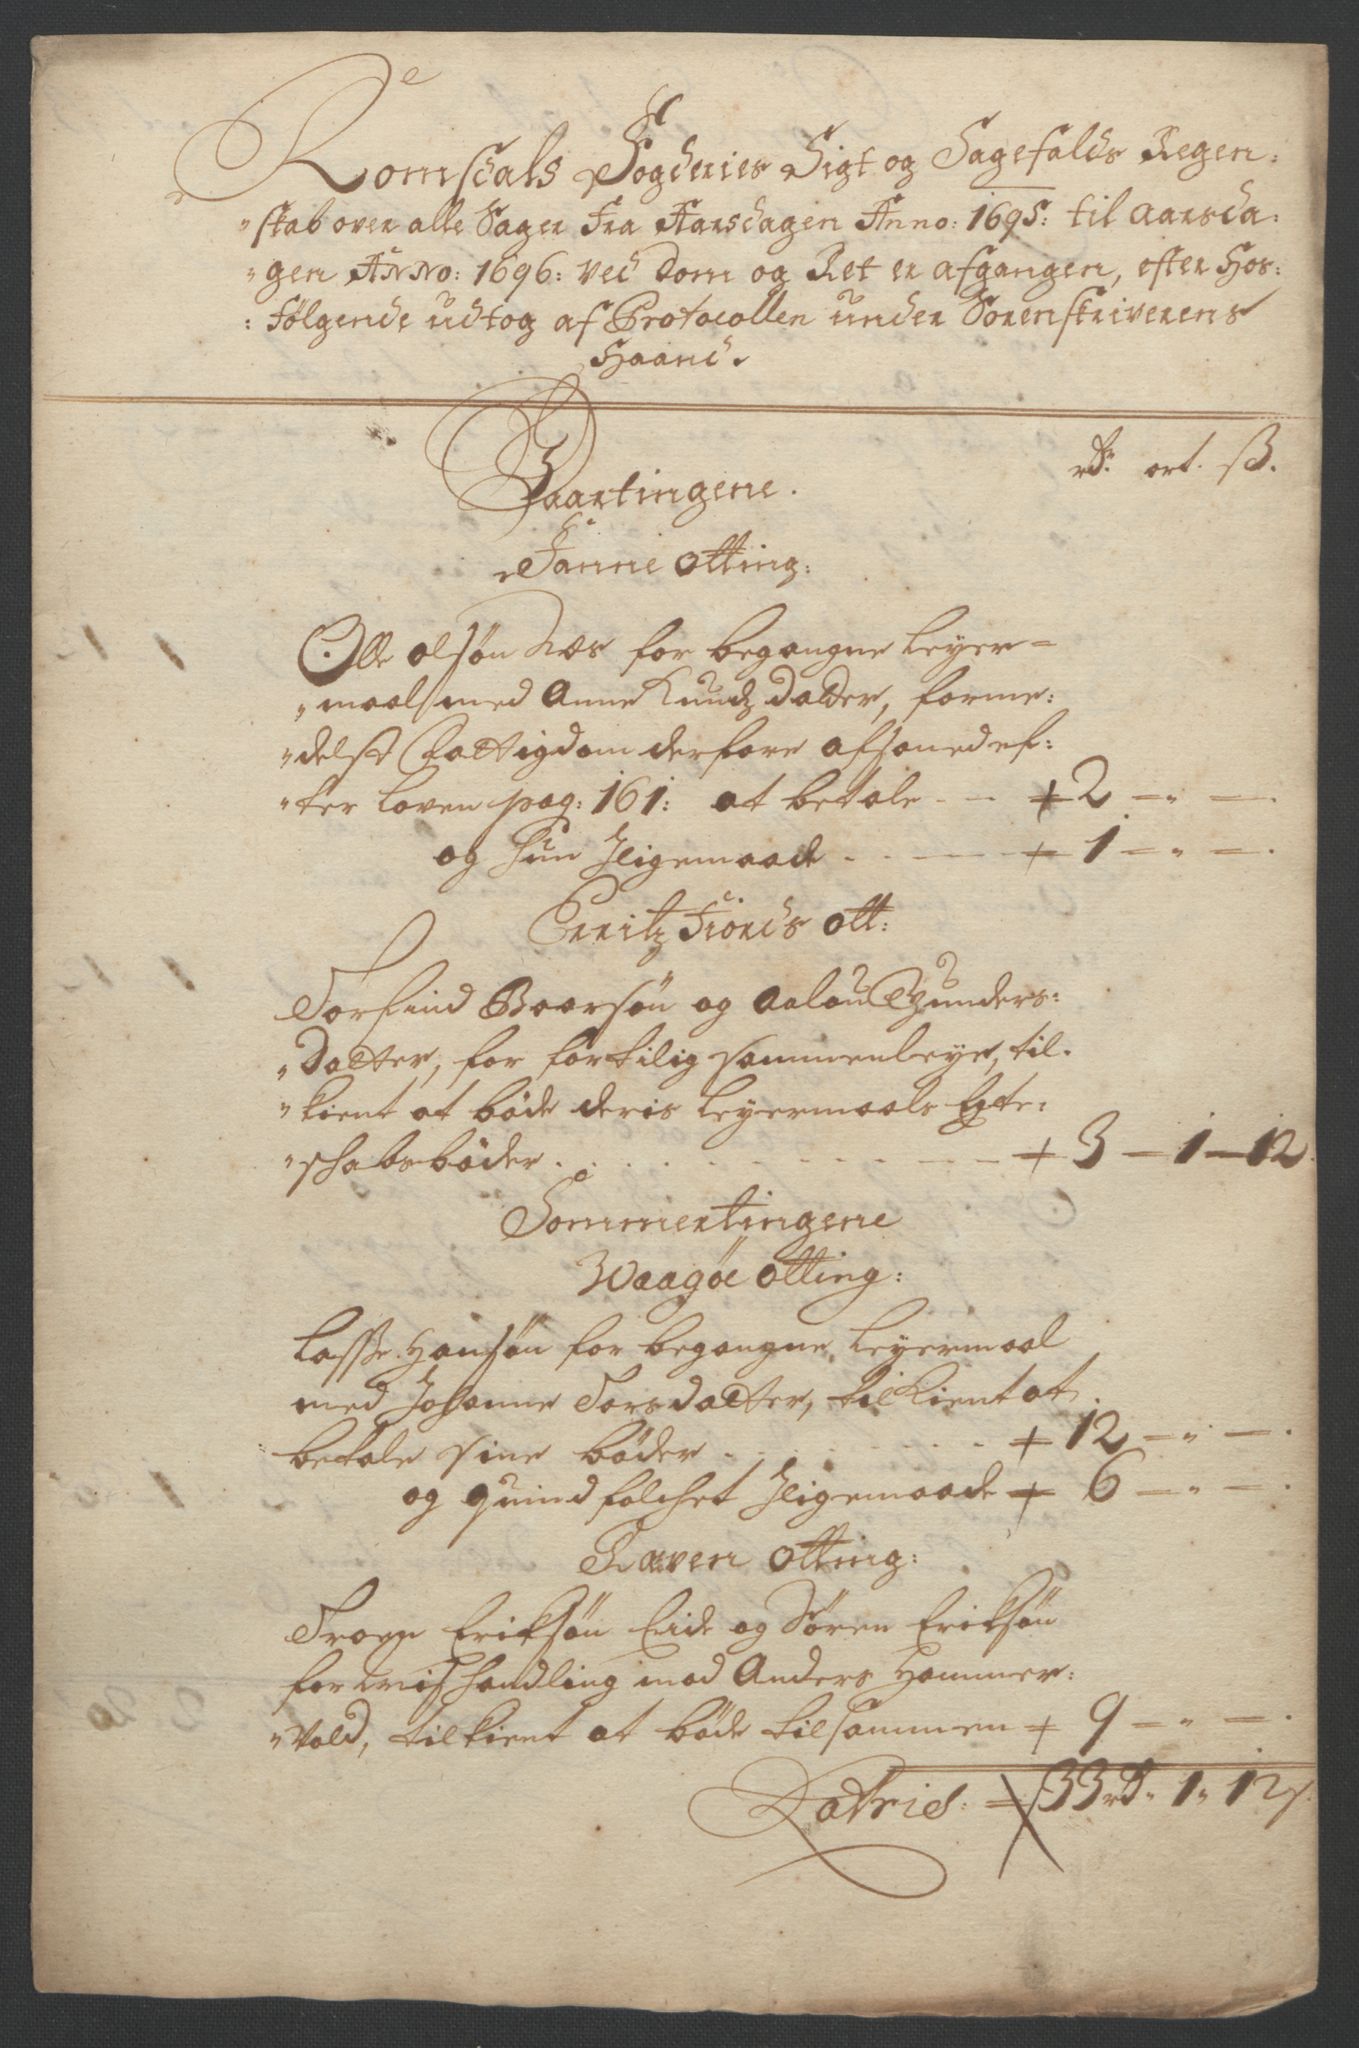 Romsdals Fogderies Sigt og Sagefalds Regen:
skab over alle Sager Fra Aarsdagen Anno: 1695: til aarsda:
gen Anno: 1696: ved Dom og Ret er afgangen, efter Hos:
følgende udtog af Protocollen under Sorenskriverens
Haand.
Vaartingene.
rdr. ort. ß.
Fanne Otting:
Olle olsøn Næs for begangne Leyer=
maal med Anne Knudz datter, forme:
delst Fattigdom derfore afsoned ef:
ter loven pag: 161: at betale - - + 2 - " -
og hun Jligemaade . . - + 1 - " -
Erritz Fiords ott:
Torfind Baarsøn og Aalou Gunders:
Datter, for fortilig sammenleye, til.
kient at bøde deris leyermaals Egte:
schabsbøder . . . + 3 - 1 - 12
Sommertingene
Waagøe Otting:
Lasse Hansøn for begangne Leyermaal
med Johanne Torsdatter, tilkient at
betale sine bøder . . . + 12 - " -
og quindfolchet Jligemaade + 6 - " -
Raven Otting:
Troen Eriksøn Eide og Søren Eriksøn
for mishandling mod Anders Hammer:
vold, tilkient at bøde tilsammen + 9 - " -
Latris: = 33 rdr. 1 " 12 ß.